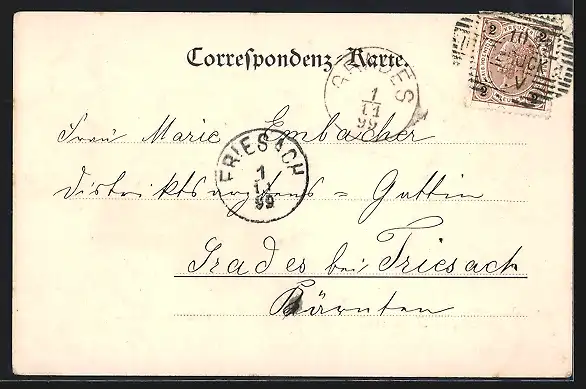 Correspondenz-Karte.
2 2
2 2
GRADES
1
11
99
Frau Marie Embacher
FRIESACH
1
11
99
Distriktsarztens = Gattin
Grades bei Friesach
Kärnten